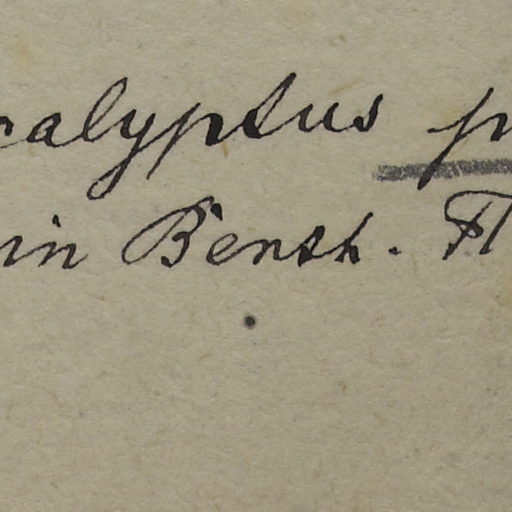 calyptus p
in Benth. Fl